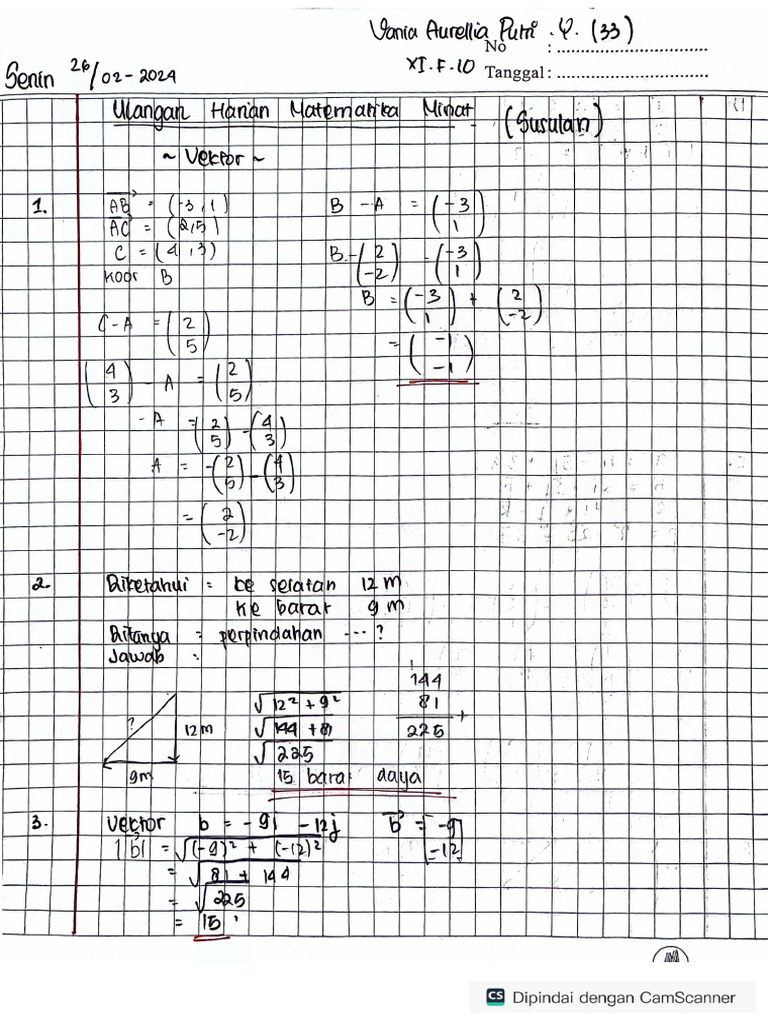 Vania Aurellia Putri . Y. (33)
No : ..............................
XI.F.10 Tanggal : ..............................
Senin 26/02-2024
Ulangan Harian Matematika Minat (Susulan)
~ Vektor ~
1. AB = (-3, 1)
AC = (2,5)
C = (4,3)
Koor B
C - A = (2 5)
(4 3) - A = (2 5)
- A = (2 5) - (4 3)
A = -(2 5) - (4 3)
= (2 -2)
B - A = (-3 1)
B - (2 -2) = (-3 1)
B = (-3 1) + (2 -2)
= (-1 -1)
2. Diketahui : ke selatan 12 m
ke barat 9 m
Ditanya : perpindahan ... ?
Jawab :
? 12m
9m
√12² + 9²
√144 + 81
√225
15 barat daya
144
81
+
225
3. Vektor b = -9i - 12j
|b| = √(-9)² + (-12)²
= √81 + 144
= √225
= 15
b = [-9 -12]
CS Dipindai dengan CamScanner